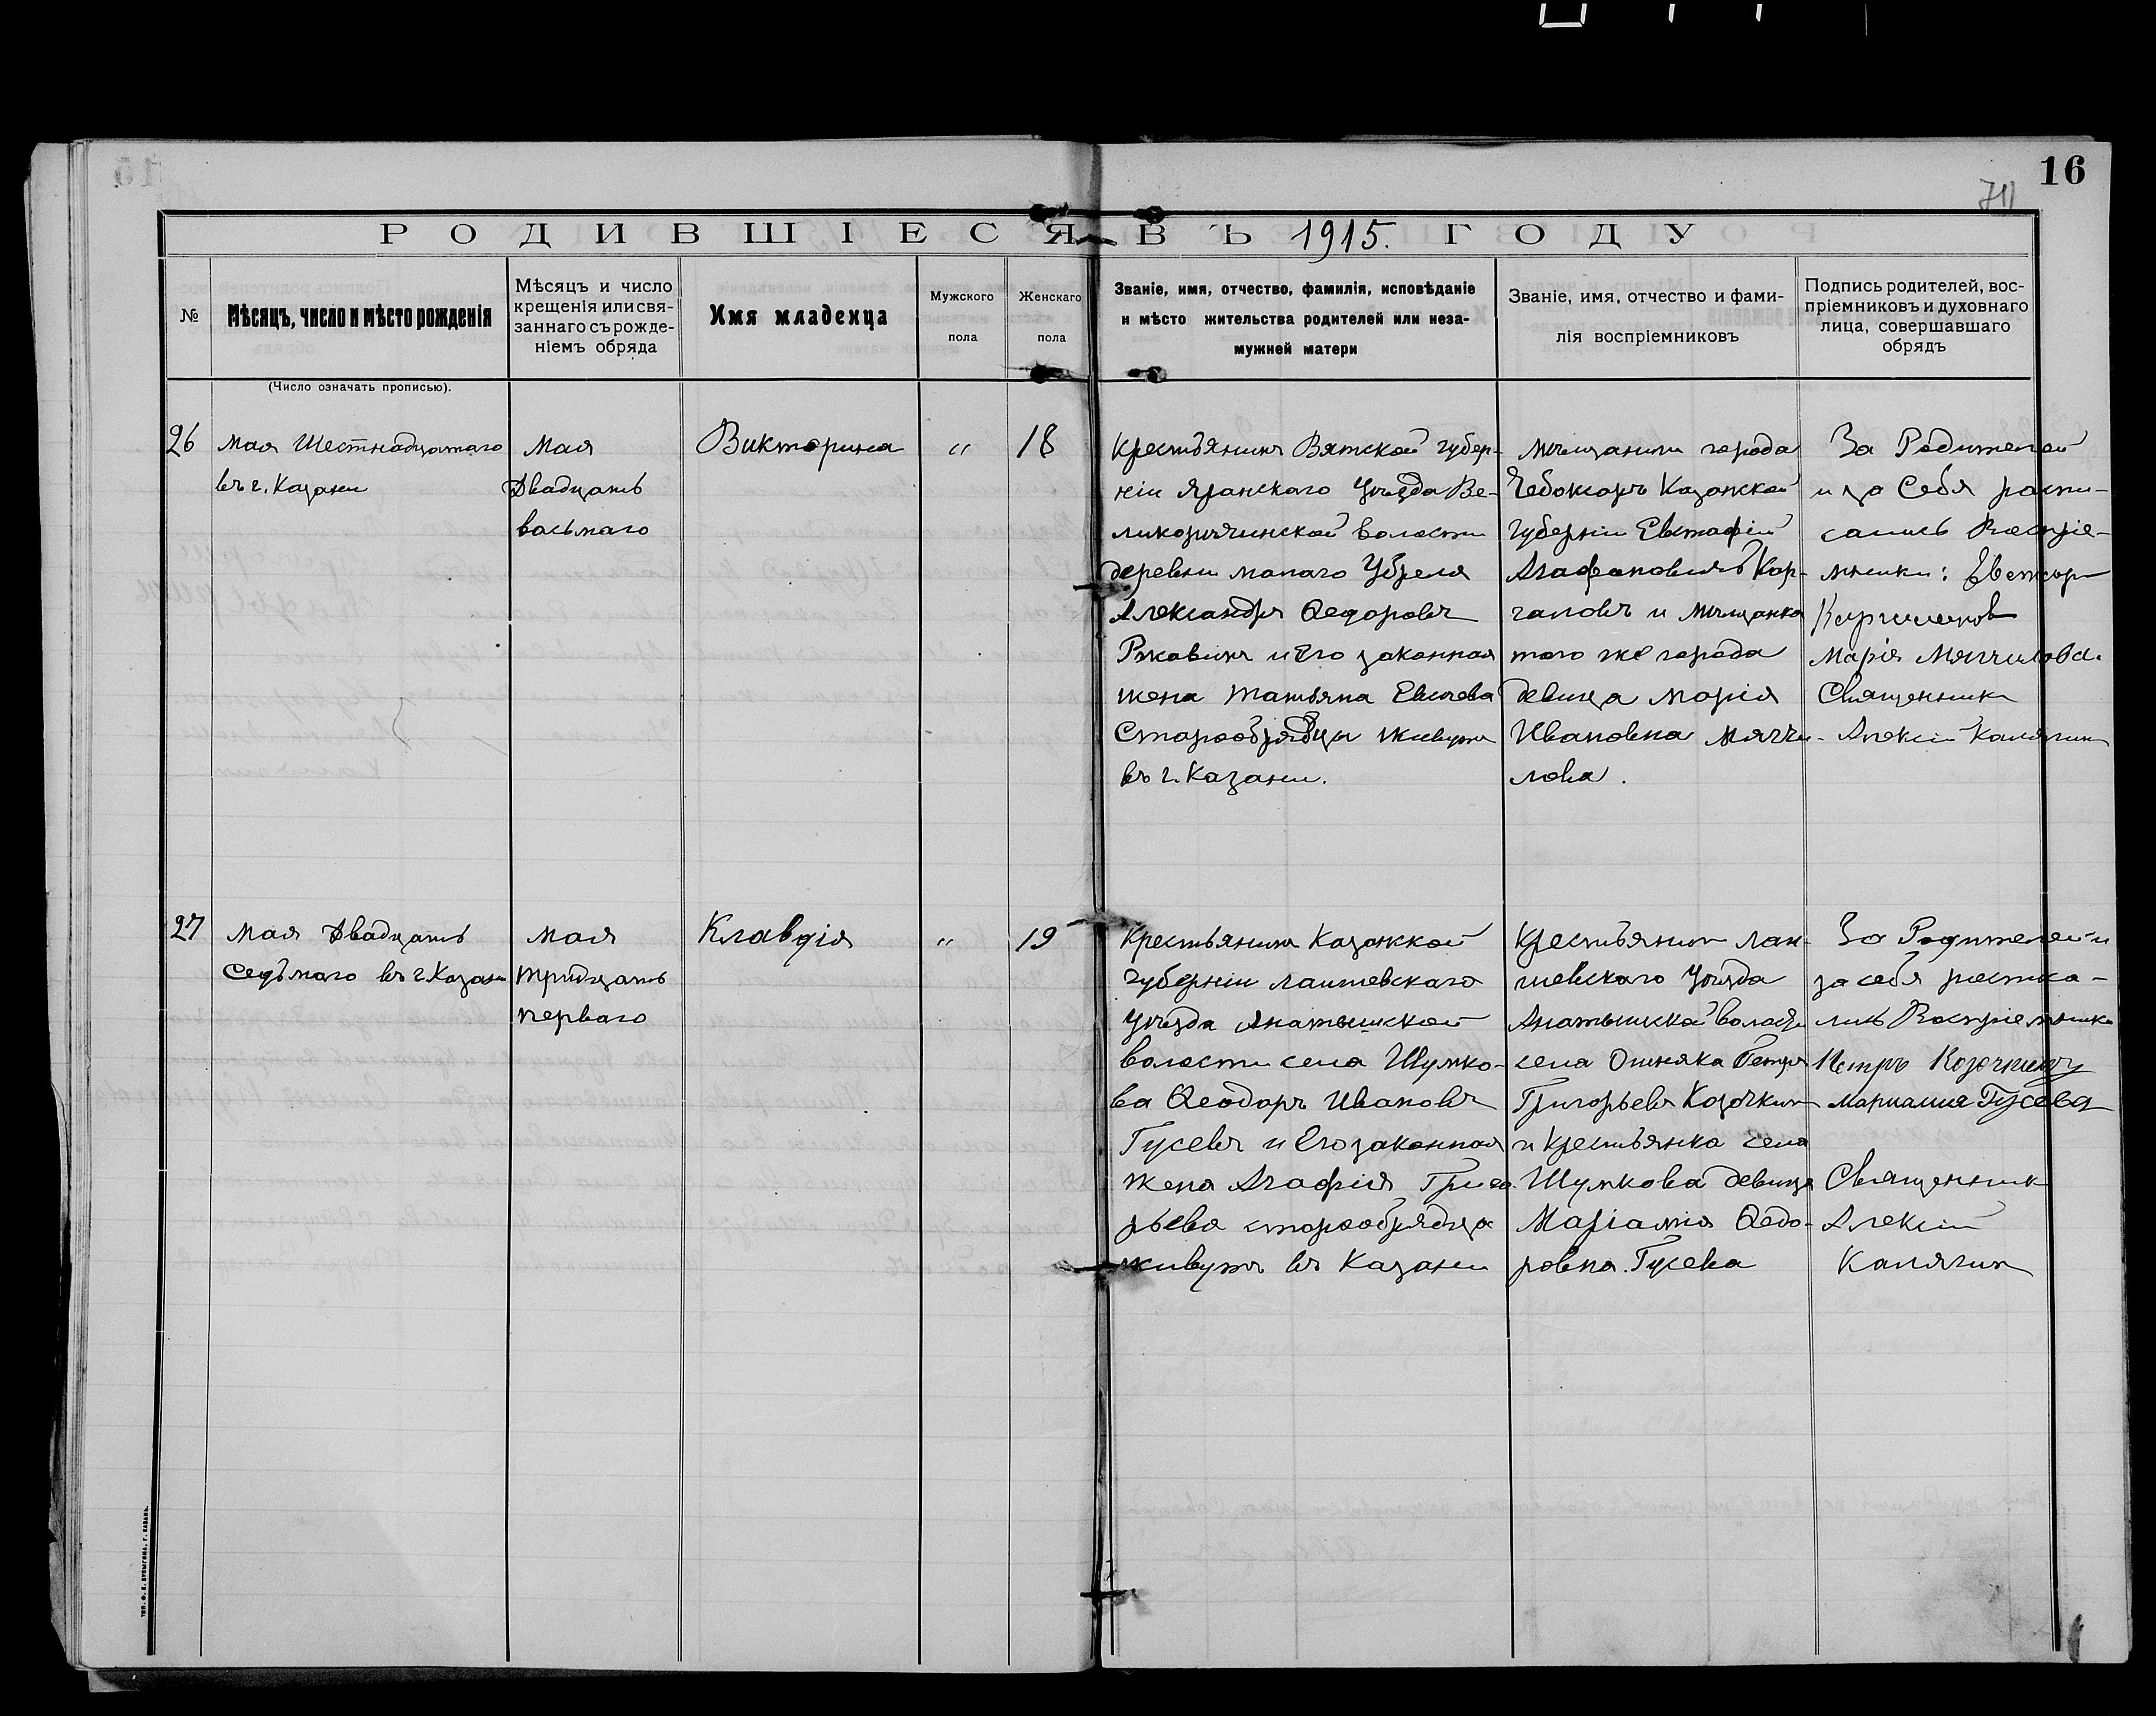 16
711
РОДИВШІЕСЯ ВЪ 1915. ГОДУ
№
Мѣсяцъ, число и мѣсто рожденія
(Число означать прописью).
Мѣсяцъ и число
крещенія или свя-
заннаго съ рожде-
ніемъ обряда
Имя младенца
Мужского
пола
Женскаго
пола
Званіе, имя, отчество, фамилія, исповѣданіе
и мѣсто жительства родителей или неза-
мужней матери
Званіе, имя, отчество и фами-
лія воспріемниковъ
Подпись родителей, вос-
пріемниковъ и духовнаго
лица, совершавшаго
обрядъ
26
Мая Шестнадцатаго
въ г. Казани
Мая
Двадцать
восьмаго
Викторина
"
18
Крестьянинъ Вятской губер-
ніи Яранскаго Уѣзда Ве-
ликорѣчинской волости
деревни малаго
Александръ Ѳедоровъ
Ржавинъ и Его законная
жена Татьяна Евсѣева
Старообрядцы живутъ
въ г. Казани.
мѣщанинъ города
Чебоксаръ Казанской
губерніи Евстафій
Агафоновичъ Кор-
чаговъ и мѣщанка
того же города
девица Марія
Ивановна Мягчи-
лова.
За Родителей
и за Себя распи-
сались Воспріе-
мники:
Марія Мягчилова.
Священникъ
Алексій Калягин
27
Мая Двадцать
Седьмаго въ г. Казани
Мая
Тридцать
перваго
Клавдія
"
19
Крестьянинъ Казанской
губерніи лаишевскаго
Уѣзда Анатышской
волости села Шумко-
ва Ѳеодоръ Ивановъ
Гусевъ и Его законная
жена Агафія Григо
рьева старообрядцы
живутъ въ Казани
Крестьянинъ Лаи-
шевскаго Уѣзда
Анатышской волости
села Ошняка Петръ
Григорьевъ Козочкинъ
и Крестьянка села
Шумкова девица
Маріамія Ѳедо-
ровна. Гусева
За Родителей и
за себя расписа-
лись Воспріемники
Петръ Козочкинъ
Мариамия Гусева
Священник
Алексій
Калягин
Тип. Ф. П. Кусыгина. Г. Казань.